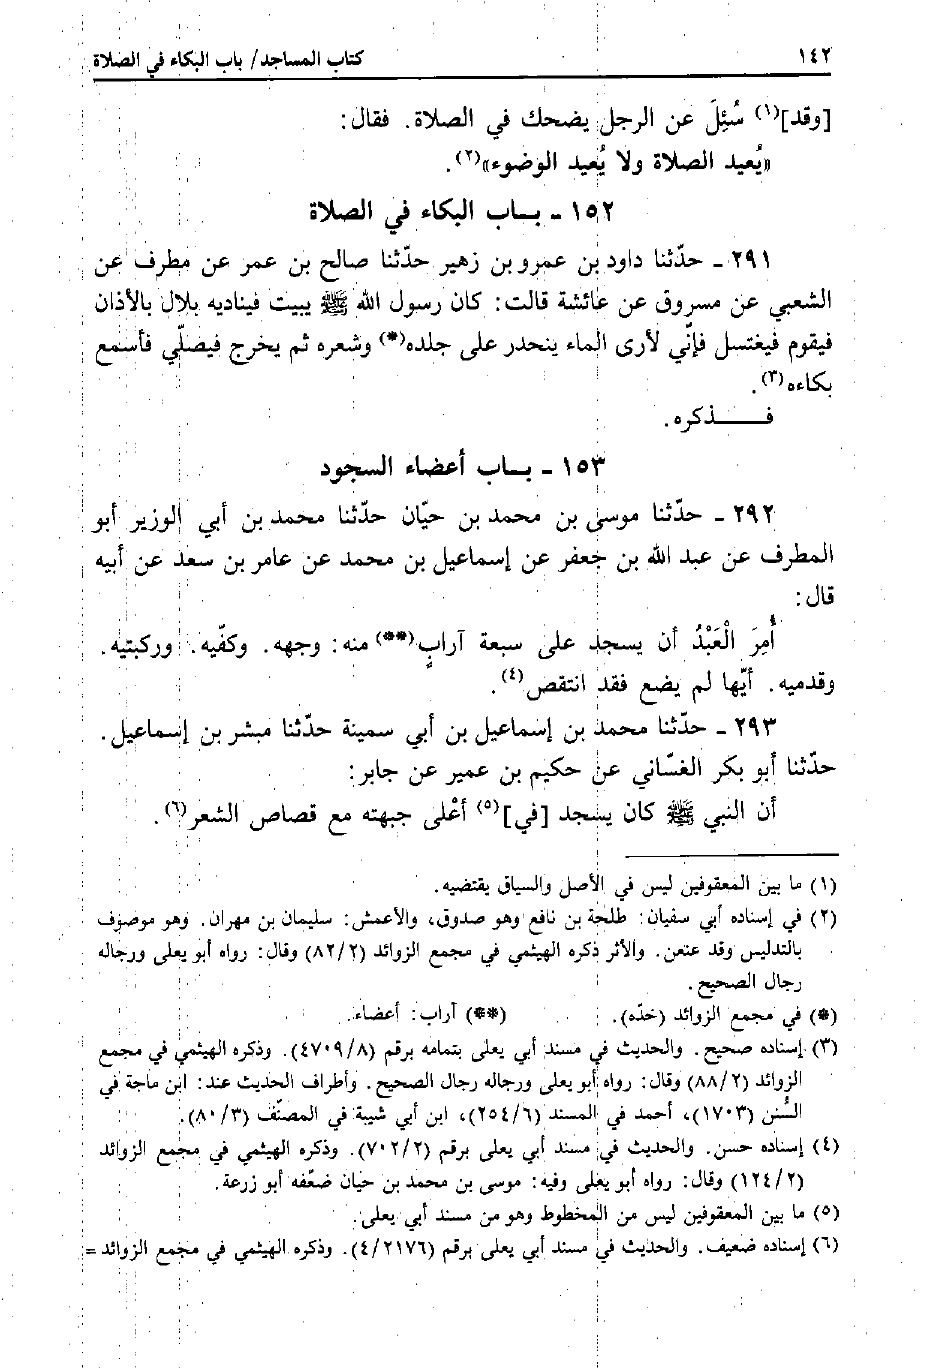 ١٤٢ كتاب المساجد/ باب البكاء في الصلاة
[وقد](١) سُئِلَ عن الرجل يضحك في الصلاة. فقال:
«يُعيد الصلاة ولا يُعيد الوضوء»(٢).
١٥٢ ـ بـاب البكاء في الصلاة
٢٩١ ـ حدّثنا داود بن عمرو بن زهير حدّثنا صالح بن عمر عن مطرف عن
الشعبي عن مسروق عن عائشة قالت: كان رسول الله ﷺ يبيت فيناديه بلال بالأذان
فيقوم فيغتسل فإنّي لأرى الماء ينحدر على جلده(*) وشعره ثم يخرج فيصلّي فأسمع
بكاءه(٣).
فـــــذكره.
١٥٣ ـ بـاب أعضاء السجود
٢٩٢ ـ حدّثنا موسى بن محمد بن حيّان حدّثنا محمد بن أبي الوزير أبو
المطرف عن عبد الله بن جعفر عن إسماعيل بن محمد عن عامر بن سعد عن أبيه
قال:
أُمِرَ الْعَبْدُ أن يسجد على سبعة آرابٍ(**) منه: وجهه. وكفّيه. وركبتيه.
وقدميه. أيّها لم يضع فقد انتقص(٤).
٢٩٣ ـ حدّثنا محمد بن إسماعيل بن أبي سمينة حدّثنا مبشر بن إسماعيل.
حدّثنا أبو بكر الغسّاني عن حكيم بن عمير عن جابر:
أن النبي ﷺ كان يسجد [في](٥) أعْلى جبهته مع قصاص الشعر(٦).
(١) ما بين المعقوفين ليس في الأصل والسياق يقتضيه.
(٢) في إسناده أبي سفيان: طلحة بن نافع وهو صدوق، والأعمش: سليمان بن مهران. وهو موصوف
بالتدليس وقد عنعن. والأثر ذكره الهيثمي في مجمع الزوائد (٨٢/٢) وقال: رواه أبو يعلى ورجاله
رجال الصحيح.
(*) في مجمع الزوائد (خدّه). (**) آراب: أعضاء.
(٣) إسناده صحيح. والحديث في مسند أبي يعلى بتمامه برقم (٤٧٠٩/٨). وذكره الهيثمي في مجمع
الزوائد (٨٨/٢) وقال: رواه أبو يعلى ورجاله رجال الصحيح. وأطراف الحديث عند: ابن ماجة في
السُّنن (١٧٠٣)، أحمد في المسند (٢٥٤/٦)، ابن أبي شيبة في المصنّف (٨٠/٣).
(٤) إسناده حسن. والحديث في مسند أبي يعلى برقم (٧٠٢/٢). وذكره الهيثمي في مجمع الزوائد
(١٢٤/٢) وقال: رواه أبو يعلى وفيه: موسى بن محمد بن حيان ضعّفه أبو زرعة.
(٥) ما بين المعقوفين ليس من المخطوط وهو من مسند أبي يعلى.
(٦) إسناده ضعيف. والحديث في مسند أبي يعلى برقم (٤/٢١٧٦). وذكره الهيثمي في مجمع الزوائد =